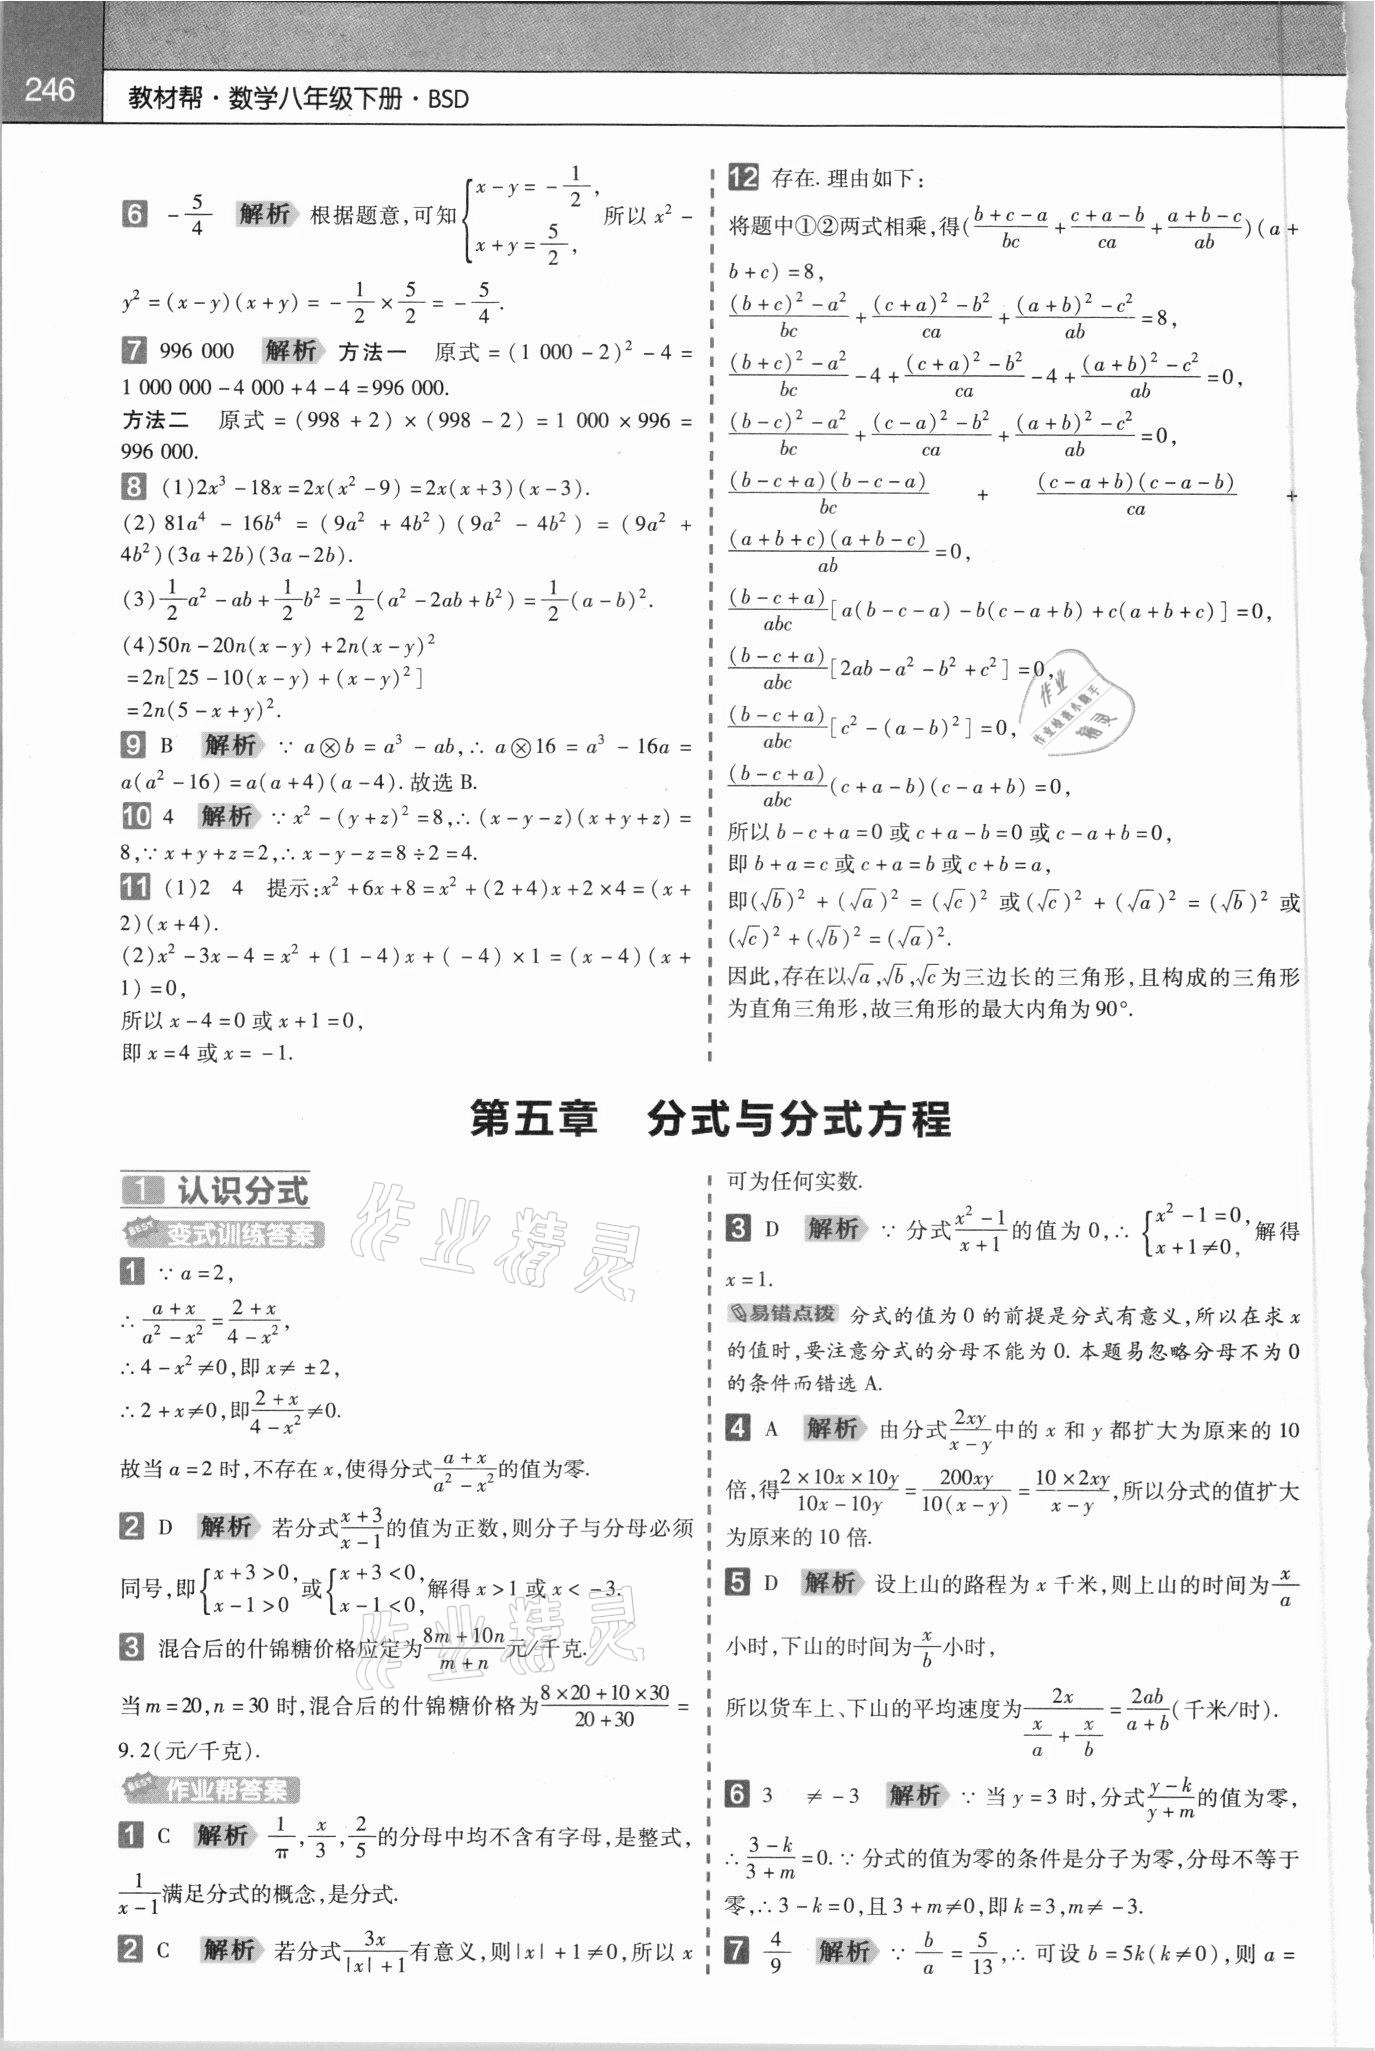 246
教材帮·数学八年级下册·BSD
6 -5/4 解析 根据题意,可知{x-y=-1/2, x+y=5/2, 所以 x²-
y²=(x-y)(x+y)=-1/2×5/2=-5/4.
7 996 000 解析 方法一 原式=(1 000-2)²-4=
1 000 000-4 000+4-4=996 000.
方法二 原式=(998+2)×(998-2)=1 000×996=
996 000.
8 (1)2x³-18x=2x(x²-9)=2x(x+3)(x-3).
(2)81a⁴-16b⁴=(9a²+4b²)(9a²-4b²)=(9a²+
4b²)(3a+2b)(3a-2b).
(3)1/2a²-ab+1/2b²=1/2(a²-2ab+b²)=1/2(a-b)².
(4)50n-20n(x-y)+2n(x-y)²
=2n[25-10(x-y)+(x-y)²]
=2n(5-x+y)².
9 B 解析 ∵a⊗b=a³-ab,∴a⊗16=a³-16a=
a(a²-16)=a(a+4)(a-4).故选B.
10 4 解析 ∵x²-(y+z)²=8,∴(x-y-z)(x+y+z)=
8,∵x+y+z=2,∴x-y-z=8÷2=4.
11 (1)2 4 提示:x²+6x+8=x²+(2+4)x+2×4=(x+
2)(x+4).
(2)x²-3x-4=x²+(1-4)x+(-4)×1=(x-4)(x+
1)=0,
所以x-4=0或x+1=0,
即x=4或x=-1.
12 存在.理由如下:
将题中①②两式相乘,得((b+c-a)/bc+(c+a-b)/ca+(a+b-c)/ab)(a+
b+c)=8,
((b+c)²-a²)/bc+((c+a)²-b²)/ca+((a+b)²-c²)/ab=8,
((b+c)²-a²)/bc-4+((c+a)²-b²)/ca-4+((a+b)²-c²)/ab=0,
((b-c)²-a²)/bc+((c-a)²-b²)/ca+((a+b)²-c²)/ab=0,
(b-c+a)(b-c-a)/bc+(c-a+b)(c-a-b)/ca+
(a+b+c)(a+b-c)/ab=0,
(b-c+a)/abc[a(b-c-a)-b(c-a+b)+c(a+b+c)]=0,
(b-c+a)/abc[2ab-a²-b²+c²]=0,
(b-c+a)/abc[c²-(a-b)²]=0,
(b-c+a)/abc(c+a-b)(c-a+b)=0,
所以b-c+a=0或c+a-b=0或c-a+b=0,
即b+a=c或c+a=b或c+b=a,
即(√b)²+(√a)²=(√c)²或(√c)²+(√a)²=(√b)²或
(√c)²+(√b)²=(√a)².
因此,存在以√a,√b,√c为三边长的三角形,且构成的三角形
为直角三角形,故三角形的最大内角为90°.
第五章 分式与分式方程
1 认识分式
BEST 变式训练答案
1 ∵a=2,
∴(a+x)/(a²-x²)=(2+x)/(4-x²),
∴4-x²≠0,即x≠±2,
∴2+x≠0,即(2+x)/(4-x²)≠0.
故当a=2时,不存在x,使得分式(a+x)/(a²-x²)的值为零.
2 D 解析 若分式(x+3)/(x-1)的值为正数,则分子与分母必须
同号,即{x+3>0, x-1>0 或{x+3<0, x-1<0, 解得x>1或x<-3.
3 混合后的什锦糖价格应定为(8m+10n)/(m+n)元/千克.
当m=20,n=30时,混合后的什锦糖价格为(8×20+10×30)/(20+30)=
9.2(元/千克).
BEST 作业帮答案
1 C 解析 1/π,x/3,2/5的分母中均不含有字母,是整式,
1/(x-1)满足分式的概念,是分式.
2 C 解析 若分式3x/(|x|+1)有意义,则|x|+1≠0,所以x
可为任何实数.
3 D 解析 ∵分式(x²-1)/(x+1)的值为0,∴{x²-1=0, x+1≠0, 解得
x=1.
易错点拨 分式的值为0的前提是分式有意义,所以在求x
的值时,要注意分式的分母不能为0.本题易忽略分母不为0
的条件而错选A.
4 A 解析 由分式2xy/(x-y)中的x和y都扩大为原来的10
倍,得(2×10x×10y)/(10x-10y)=200xy/10(x-y)=(10×2xy)/(x-y),所以分式的值扩大
为原来的10倍.
5 D 解析 设上山的路程为x千米,则上山的时间为x/a
小时,下山的时间为x/b小时,
所以货车上、下山的平均速度为2x/(x/a+x/b)=2ab/(a+b)(千米/时).
6 3 ≠-3 解析 ∵当y=3时,分式(y-k)/(y+m)的值为零,
∴(3-k)/(3+m)=0.∵分式的值为零的条件是分子为零,分母不等于
零,∴3-k=0,且3+m≠0,即k=3,m≠-3.
7 4/9 解析 ∵b/a=5/13,∴可设b=5k(k≠0),则a=
作业精灵
作业精灵
作业
作业检查小助手
精灵